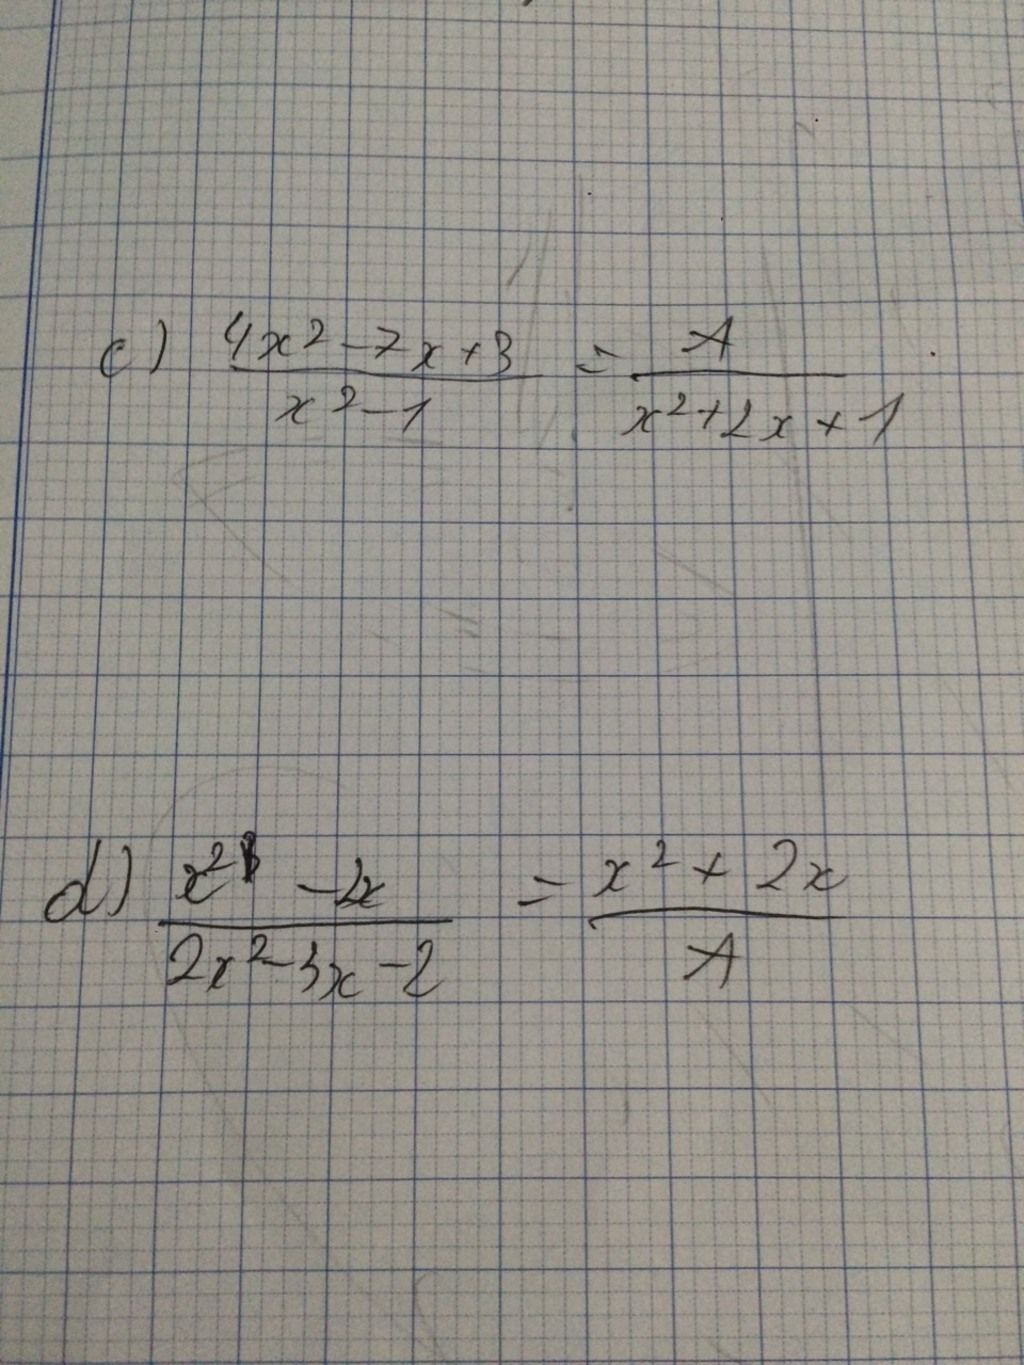 c) (4x² - 7x + 3)/(x² - 1) = A/(x² + 2x + 1)
d) (x² - 2x)/(2x² - 3x - 2) = (x² + 2x)/A